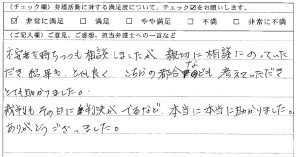 (チェック欄)弁護活動に対する満足度について、チェック☑をお願いします。
☑非常に満足 □満足 □やや満足 □不満 □非常に不満
(ご記入欄)ご意見、ご感想、担当弁護士への一言など
不安を持ちつつも相談しましたが 親切に相談にのっていた
だき 結果も、とても良く こちらの都合なども考えていただき
とても助かりました。
裁判もその日に判決がでるなど、本当に本当に助かりました。
ありがとうございました。